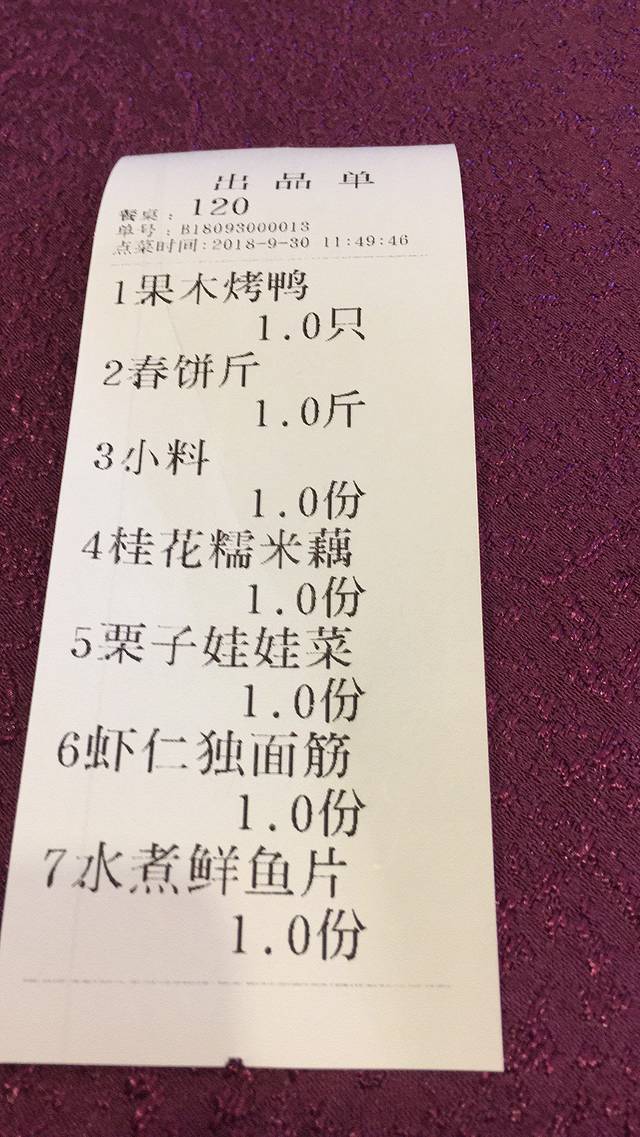 出品单
餐桌：120
单号：B18093000013
点菜时间:2018-9-30 11:49:46
1果木烤鸭
1.0只
2春饼斤
1.0斤
3小料
1.0份
4桂花糯米藕
1.0份
5栗子娃娃菜
1.0份
6虾仁独面筋
1.0份
7水煮鲜鱼片
1.0份